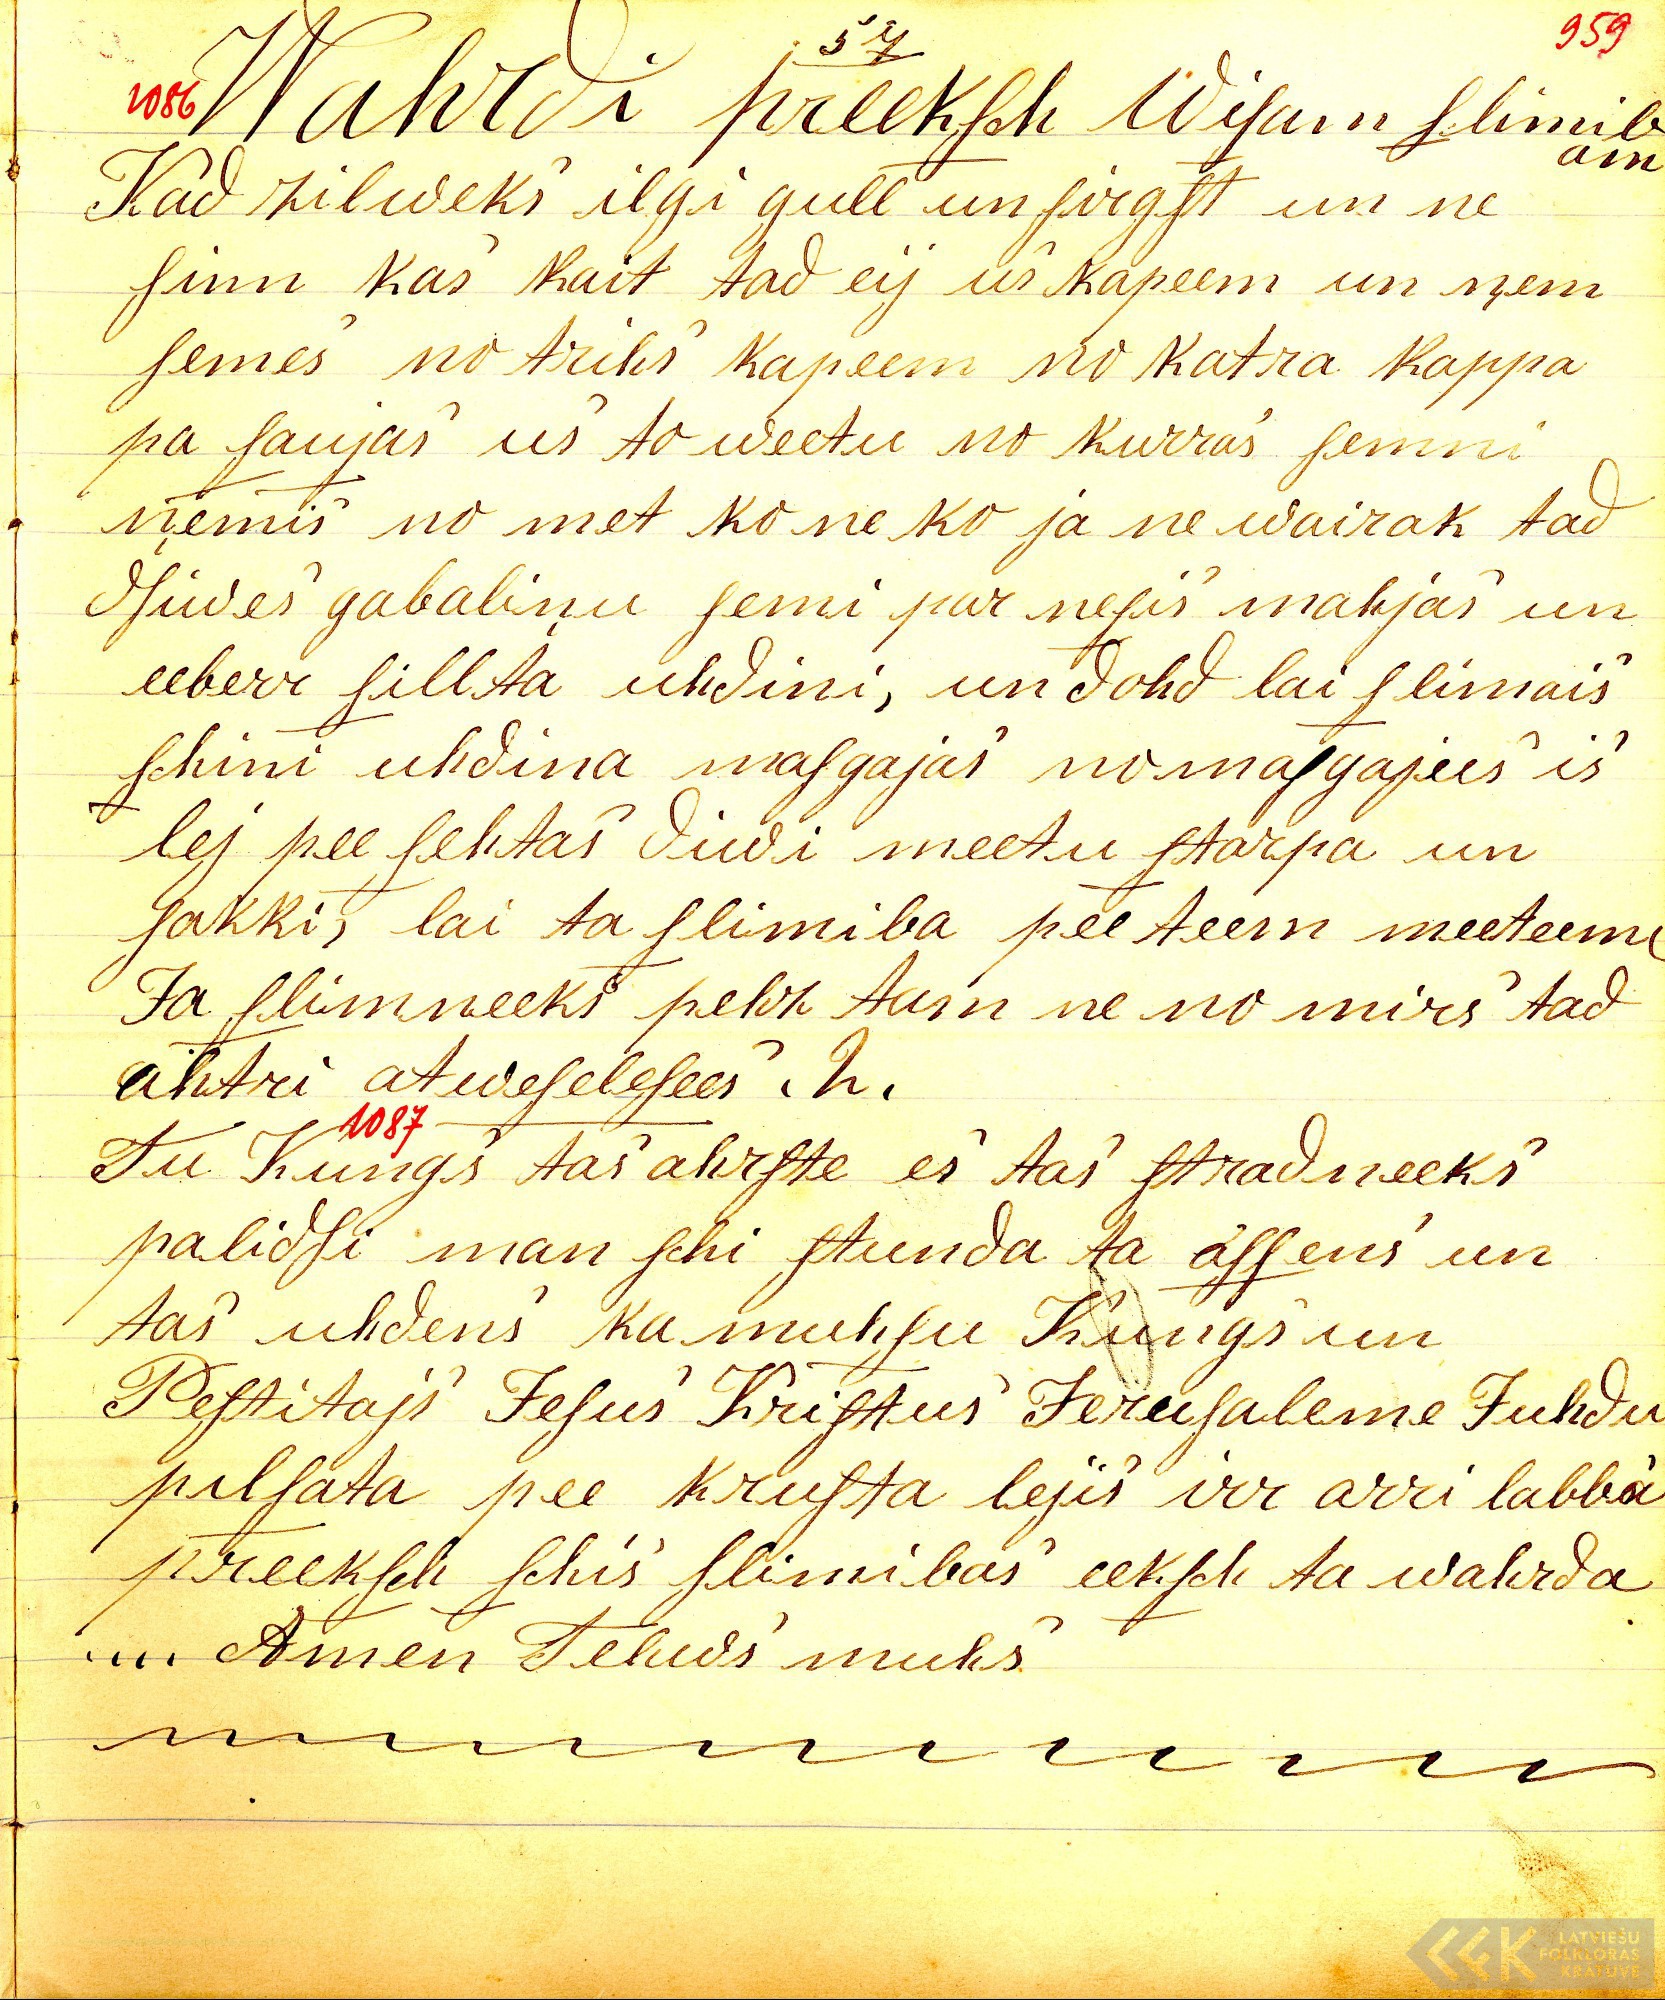 57
959
1086 Wahrdi preekſch Wiſam ſlimib
am
Kad zilweks ilgi gull un ſirgſt un ne
ſinn kas kait tad eij us kapeem un ņem
ſemes no trihs kapeem no katra kappa
pa ſaujas us to weetu no kurras ſemmi
ņemis no met ko ne ko ja ne wairak tad
dſiwes gabaliņu ſemi par neſis mahjas un
eeberr ſillta uhdini, un dohd lai ſlimais
ſchini uhdina maſgajas nomaſgajees is
lej pee ſehtas diwi meetu ſtarpa un
ſakki, lai ta ſlimiba pee teem meeteem
Ja ſlimneeks pehz tam ne no mirs tad
ahtri atweſeleſees .N.
1087
Tu Kungs tas ahrſte es tas ſtradneeks
palidſi man ſchi ſtunda ta aſſens un
tas uhdens ka muhſu Kungs un
Peſtitajs Jeſus Kriſtus Jeruſaleme Juhdu
pilſata pee kruſta lejis irr arri labba
preekſch ſchis ſlimibas eekſch ta wahrda
... Amen Tehws muhs
LATVIEŠU
FOLKLORAS
KRĀTUVE